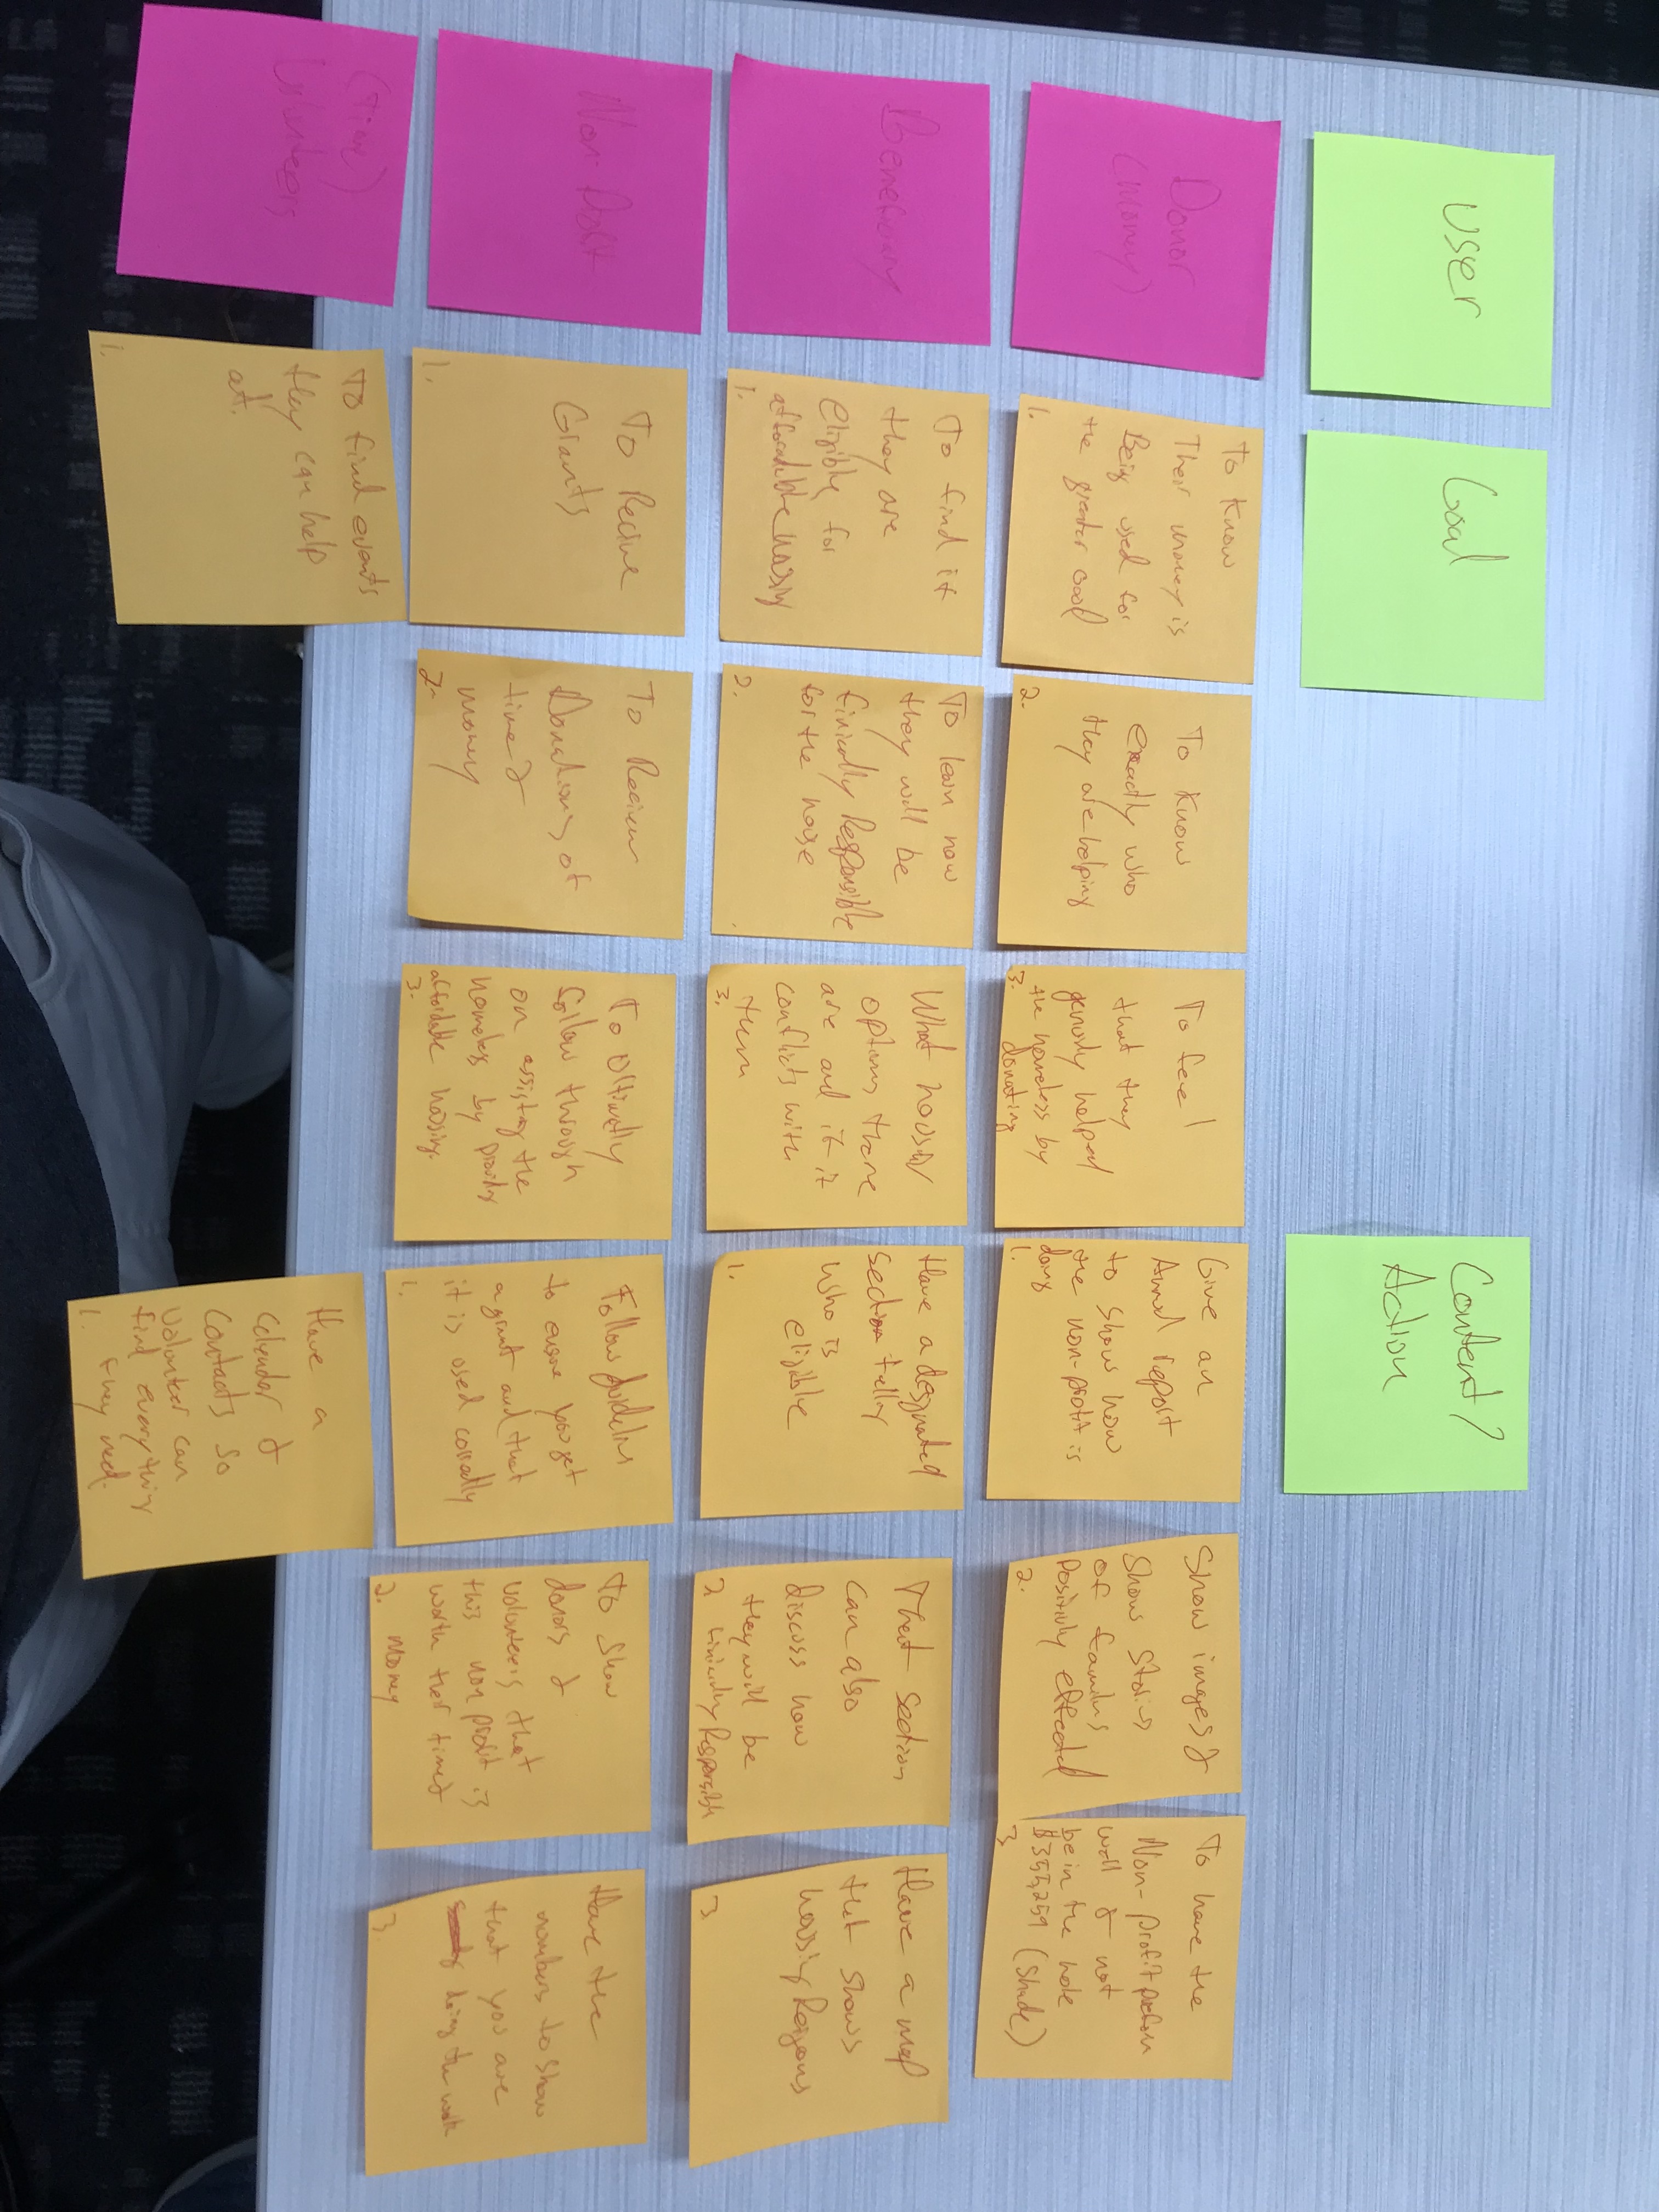 User
Goal
Content?
Action
Donor
(money)
To Know
Their money is
Being used for
the greater good
1.
To Know
exactly who
they are helping
2.
To feel
that they
genuinly helped
the homeless by
3. donating
Give an
Annul report
to show how
the non-profit is
doing
1.
Show images &
Show Stories
of familys
Positivly effected
2.
To have the
Non-profit preform
well & not
be in the hole
$355,259 (Shade)
3.
Beneficiary
To find if
they are
eligible for
affordable housing
1.
To learn how
they will be
finically Responsible
for the house
2.
What housing
options there
are and if it
conflicts with
3. them
Have a designated
section telling
who is
eligible
1.
That section
can also
discuss how
they will be
2. finically Responsible
Have a map
that shows
housing Reigons
3.
Non-Profit
To Recive
Grants
1.
To Reciew
Donations of
time &
money
2.
To Ultimatly
follow through
on assisting the
homeless by providing
affordable housing.
3.
Follow guidelins
to ensure you get
a grant and that
it is used corrally
1.
To Show
donors &
volunteers that
this non profit is
worth their time &
2. money
Have the
numbers to show
that you are
doing the work
3.
(Time)
Volunteers
To find events
they can help
at.
1.
Have a
calendar &
Contacts so
Volunteer can
find everything
1. they need.